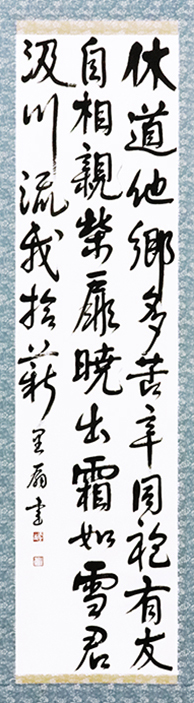 休道他郷多苦辛同袍有友
自相親柴扉暁出霜如雪君
汲川流我拾薪 書